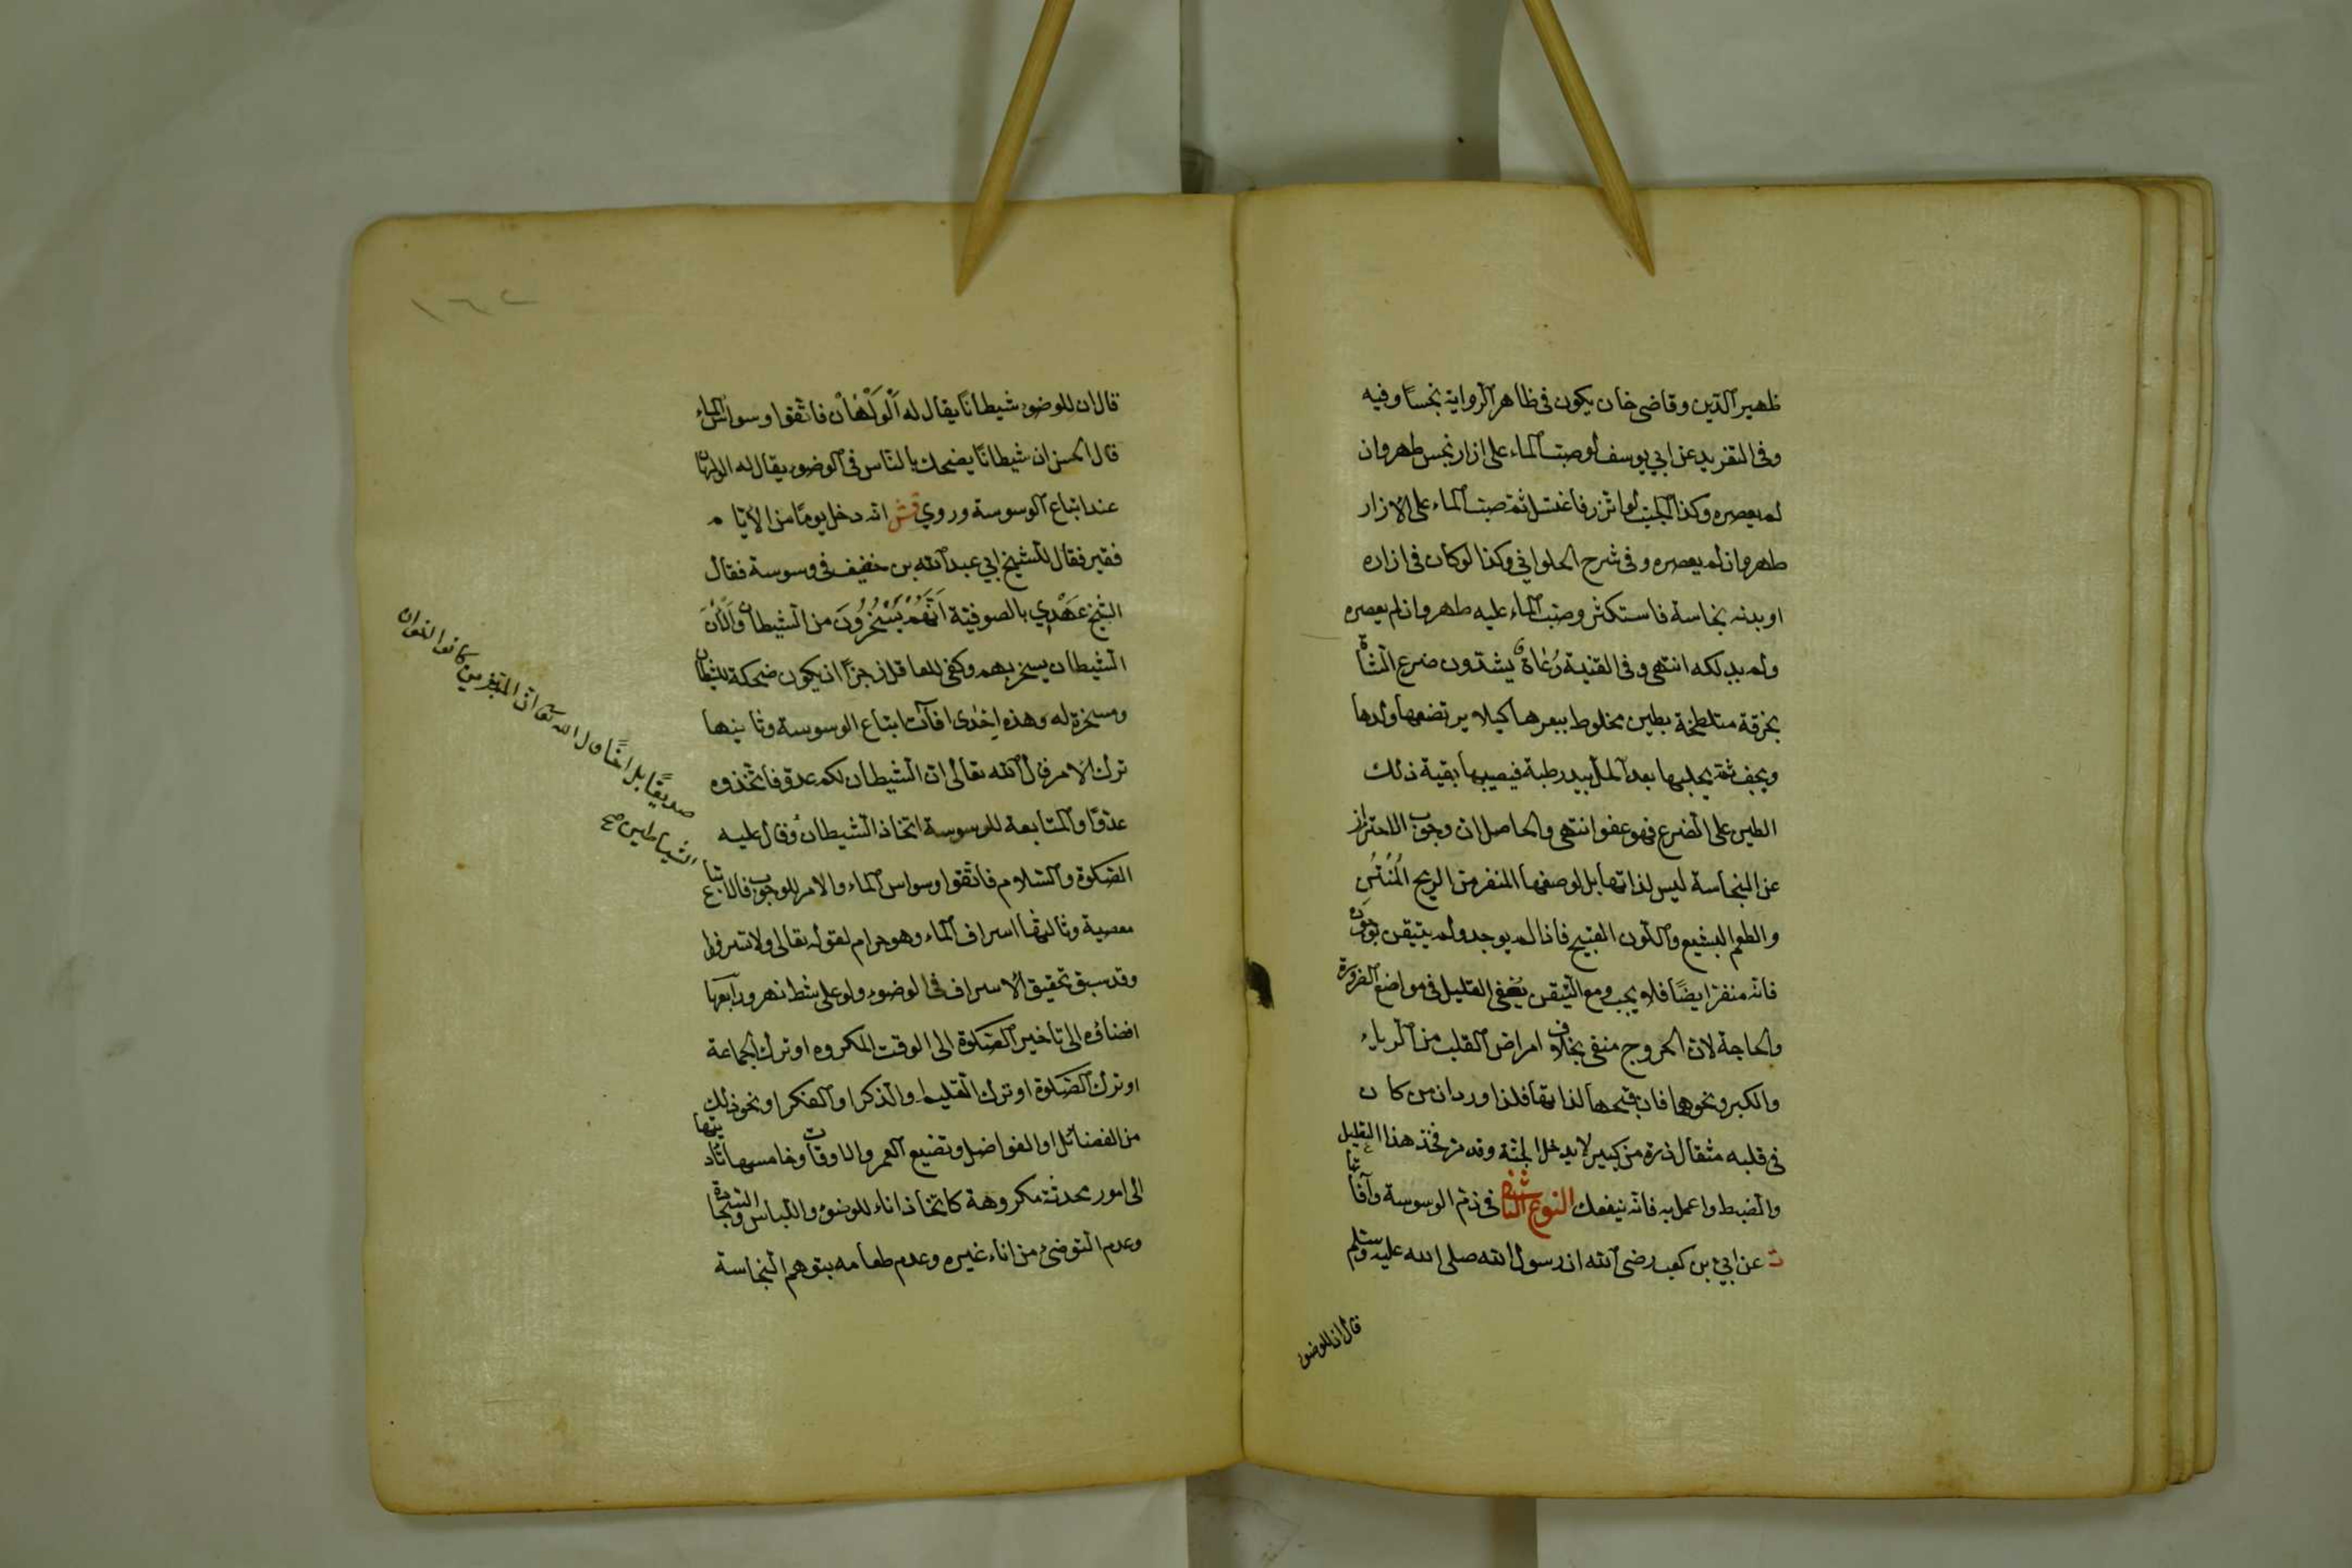 ظهير الدين وقاضى خان يكون فى ظاهر الرواية نجسا وفيه
وفى التفريد عن ابي يوسف لو صبت الماء على ازار نجس طهر وان
لم يعصره وكذا الجنب لو اتزر فاغتسل ثم صبت الماء على الازار
طهر وان لم يعصره وفى شرح الحلواني وكذا لو كان فى ازاره
او بدنه نجاسة فاستكثر وصبت الماء عليه طهر وان لم يعصره
ولم يدلكه انتهى وفى القنية رُعاة يشدون ضرع الشاة
بخرقة متلطخة بطين مخلوط ببعرها كيلا يرتضعها ولدها
ويجف ثم يحلبها بعد الحل بيد رطبة فيصيبها بقية ذلك
الطين على الضرع فهو عفو انتهى والحاصل ان وجوب الاحتراز
عن النجاسة ليس لذاتها بل لوصفها المنفر من الريح المُنتن
والطعم البشيع واللون القبيح فاذا لم يوجد ولم يتيقن بوجوده
فانه منفر ايضًا فلا يجب ومع التيقن يُعفى القليل فى مواضع الضرورة
والحاجة لان الحروج منفى بخلاف امراض القلب من الرياء
والكبر ونحوهما فان قبحها لذاتها فلذا ورد ان من كان
فى قلبه مثقال ذرة من كبير لا يدخل الجنة وقد مر فخذ هذا القليل
والضبط واعمل به فانه ينفعك النوع الثانى فى ذم الوسوسة وآفاتها
ت عن ابيّ بن كعب رضى الله ان رسول الله صلى الله عليه وسلم
قال ان للوضوء
١٦٢
قال ان للوضوء شيطانًا يقال له اَلْوَلْهَانْ فاتقوا وسواس الماء
قال الحسن ان شيطانًا يضحك بالناس فى الوضوء يقال له الولهان
عند اتباع الوسوسة وروي قش انه دخل يومًا من الايام
فقير فقال للشيخ ابي عبد الله بن خفيف فى وسوسة فقال
الشيخ عَهْدِي بالصوفية اَنَّهُمْ يَسْخَرُونَ من الشيطان والآن
الشيطان يسخر بهم وكفى للعاقل زجرًا ان يكون ضحكة للشيطان
ومسخرة له وهذه اِحْدى آفات اتباع الوسوسة وثانيها
ترك الامر قال الله تعالى ان الشيطان لكم عدو فاتخذوه
عدوًا والمتابعة للوسوسة اتخاذ الشيطان وقال عليه
صديقًا بل اخًا قال الله تعا ان المبذرين كانوا اخوان
الشياطين صح
الصلوة والسلام فاتقوا وسواس الماء والامر للوجوب فالاتباع
معصية وثالثها اسراف الماء وهو حرام لقوله تعالى ولا تسرفوا
وقد سبق تحقيق الاسراف فى الوضوء ولو على شط نهر ورابعها
افضاؤه الى تاخير الصلوة الى الوقت المكروه او ترك الجماعة
او ترك الصلوة او ترك التعليم والذكر او الفكر او نحو ذلك
من الفضائل او الفواضل وتضييع العمر والاوقات وخامسها تاديتها
الى امور محدثة مكروهة كاتخاذ اناء للوضوء واللباس والسجادة
وعدم التوضئ من اناء غيره وعدم طعامه بتوهم النجاسة